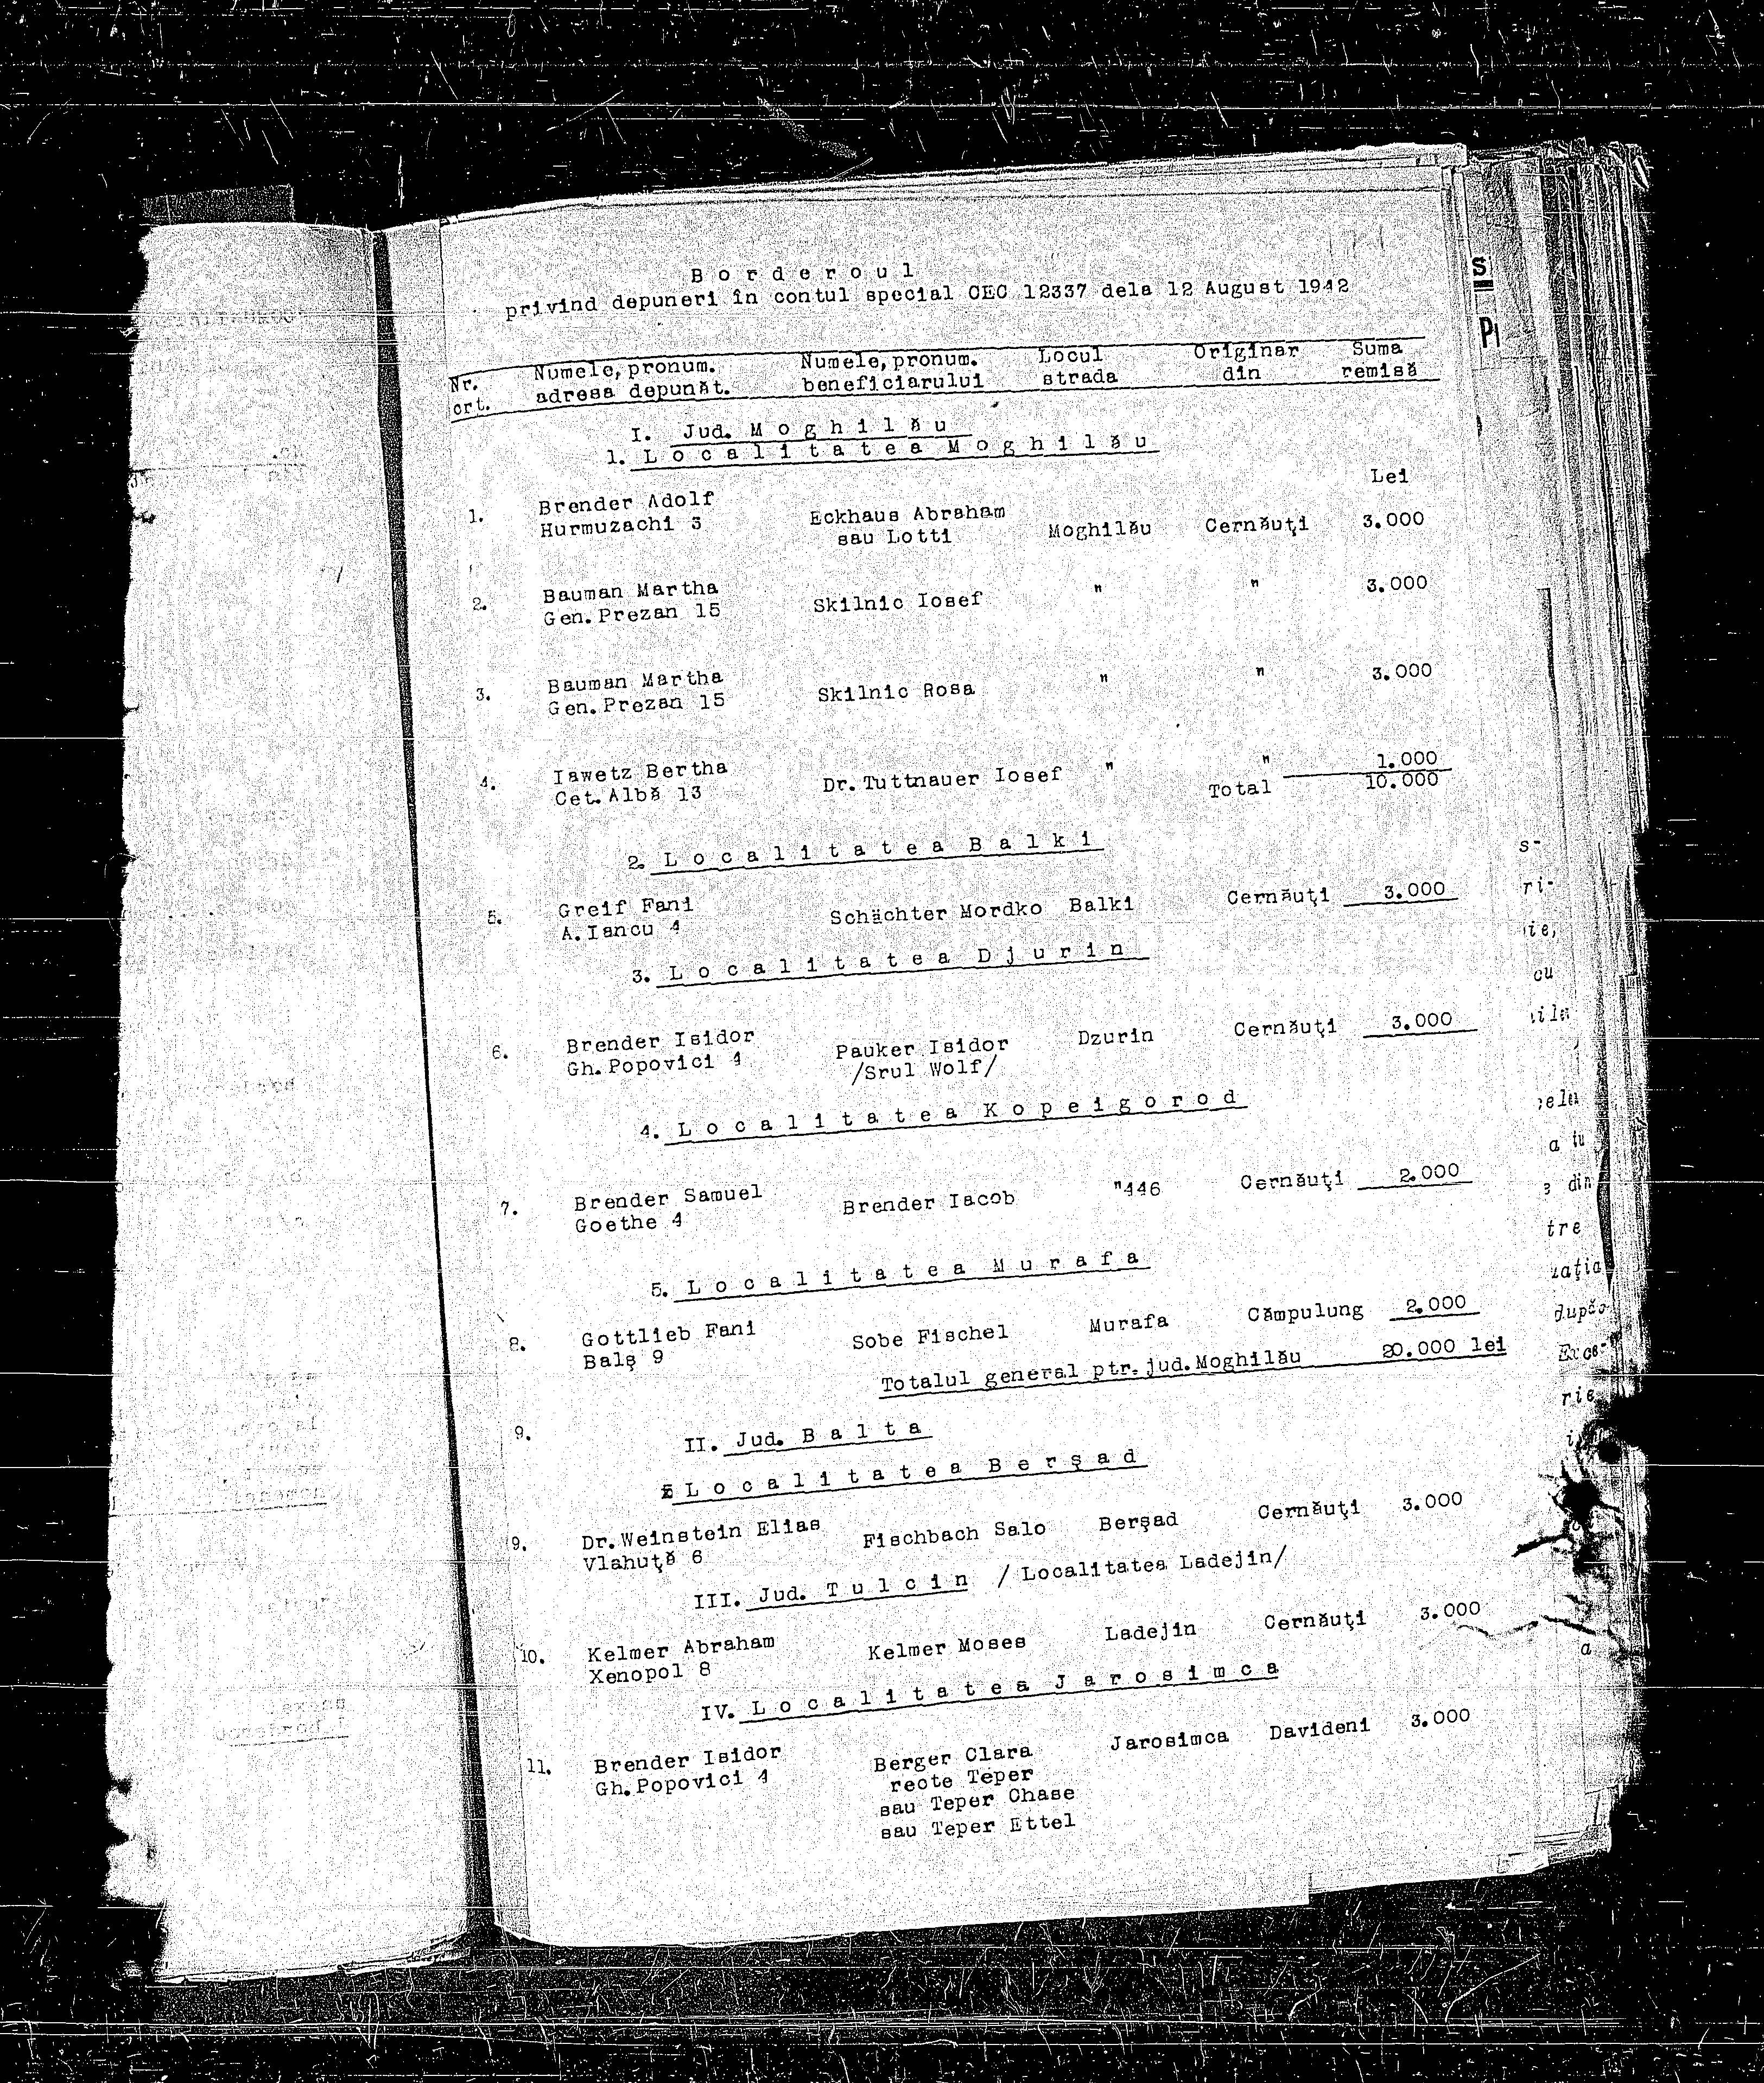 B o r d e r o u l
privind depuneri în contul special CEC 12337 dela 12 August 1942
Nr. crt. Numele, pronum. adresa depunăt. Numele, pronum. beneficiarului Locul strada Originar din Suma remisă
I. Jud. M o g h i l ă u
1. L o c a l i t a t e a M o g h i l ă u
Lei
1. Brender Adolf Eckhaus Abraham Moghilău Cernăuţi 3.000
Hurmuzachi 3 sau Lotti
2. Bauman Martha Skilnic Iosef " " 3.000
Gen. Prezan 15
3. Bauman Martha Skilnic Rosa " " 3.000
Gen. Prezan 15
4. Iawetz Bertha Dr. Tuttnauer Iosef " " 1.000
Cet. Albă 13 Total 10.000
2. L o c a l i t a t e a B a l k i
5. Greif Fani Schächter Mordko Balki Cernăuţi 3.000
A. Iancu 4
3. L o c a l i t a t e a D j u r i n
6. Brender Isidor Pauker Isidor Dzurin Cernăuţi 3.000
Gh. Popovici 4 /Srul Wolf/
4. L o c a l i t a t e a K o p e i g o r o d
7. Brender Samuel Brender Iacob "446 Cernăuţi 2.000
Goethe 4
5. L o c a l i t a t e a M u r a f a
8. Gottlieb Fani Sobe Fischel Murafa Cămpulung 2.000
Balş 9
Totalul general ptr. jud. Moghilău 20.000 lei
9. II. Jud. B a l t a
L o c a l i t a t e a B e r ş a d
9. Dr. Weinstein Elias Fischbach Salo Berşad Cernăuţi 3.000
Vlahuţă 6
III. Jud. T u l c i n / Localitatea Ladejin/
10. Kelmer Abraham Kelmer Moses Ladejin Cernăuţi 3.000
Xenopol 8
IV. L o c a l i t a t e a J a r o s i m c a
11. Brender Isidor Berger Clara Jarosimca Davideni 3.000
Gh. Popovici 4 recte Teper
sau Teper Chase
sau Teper Ettel